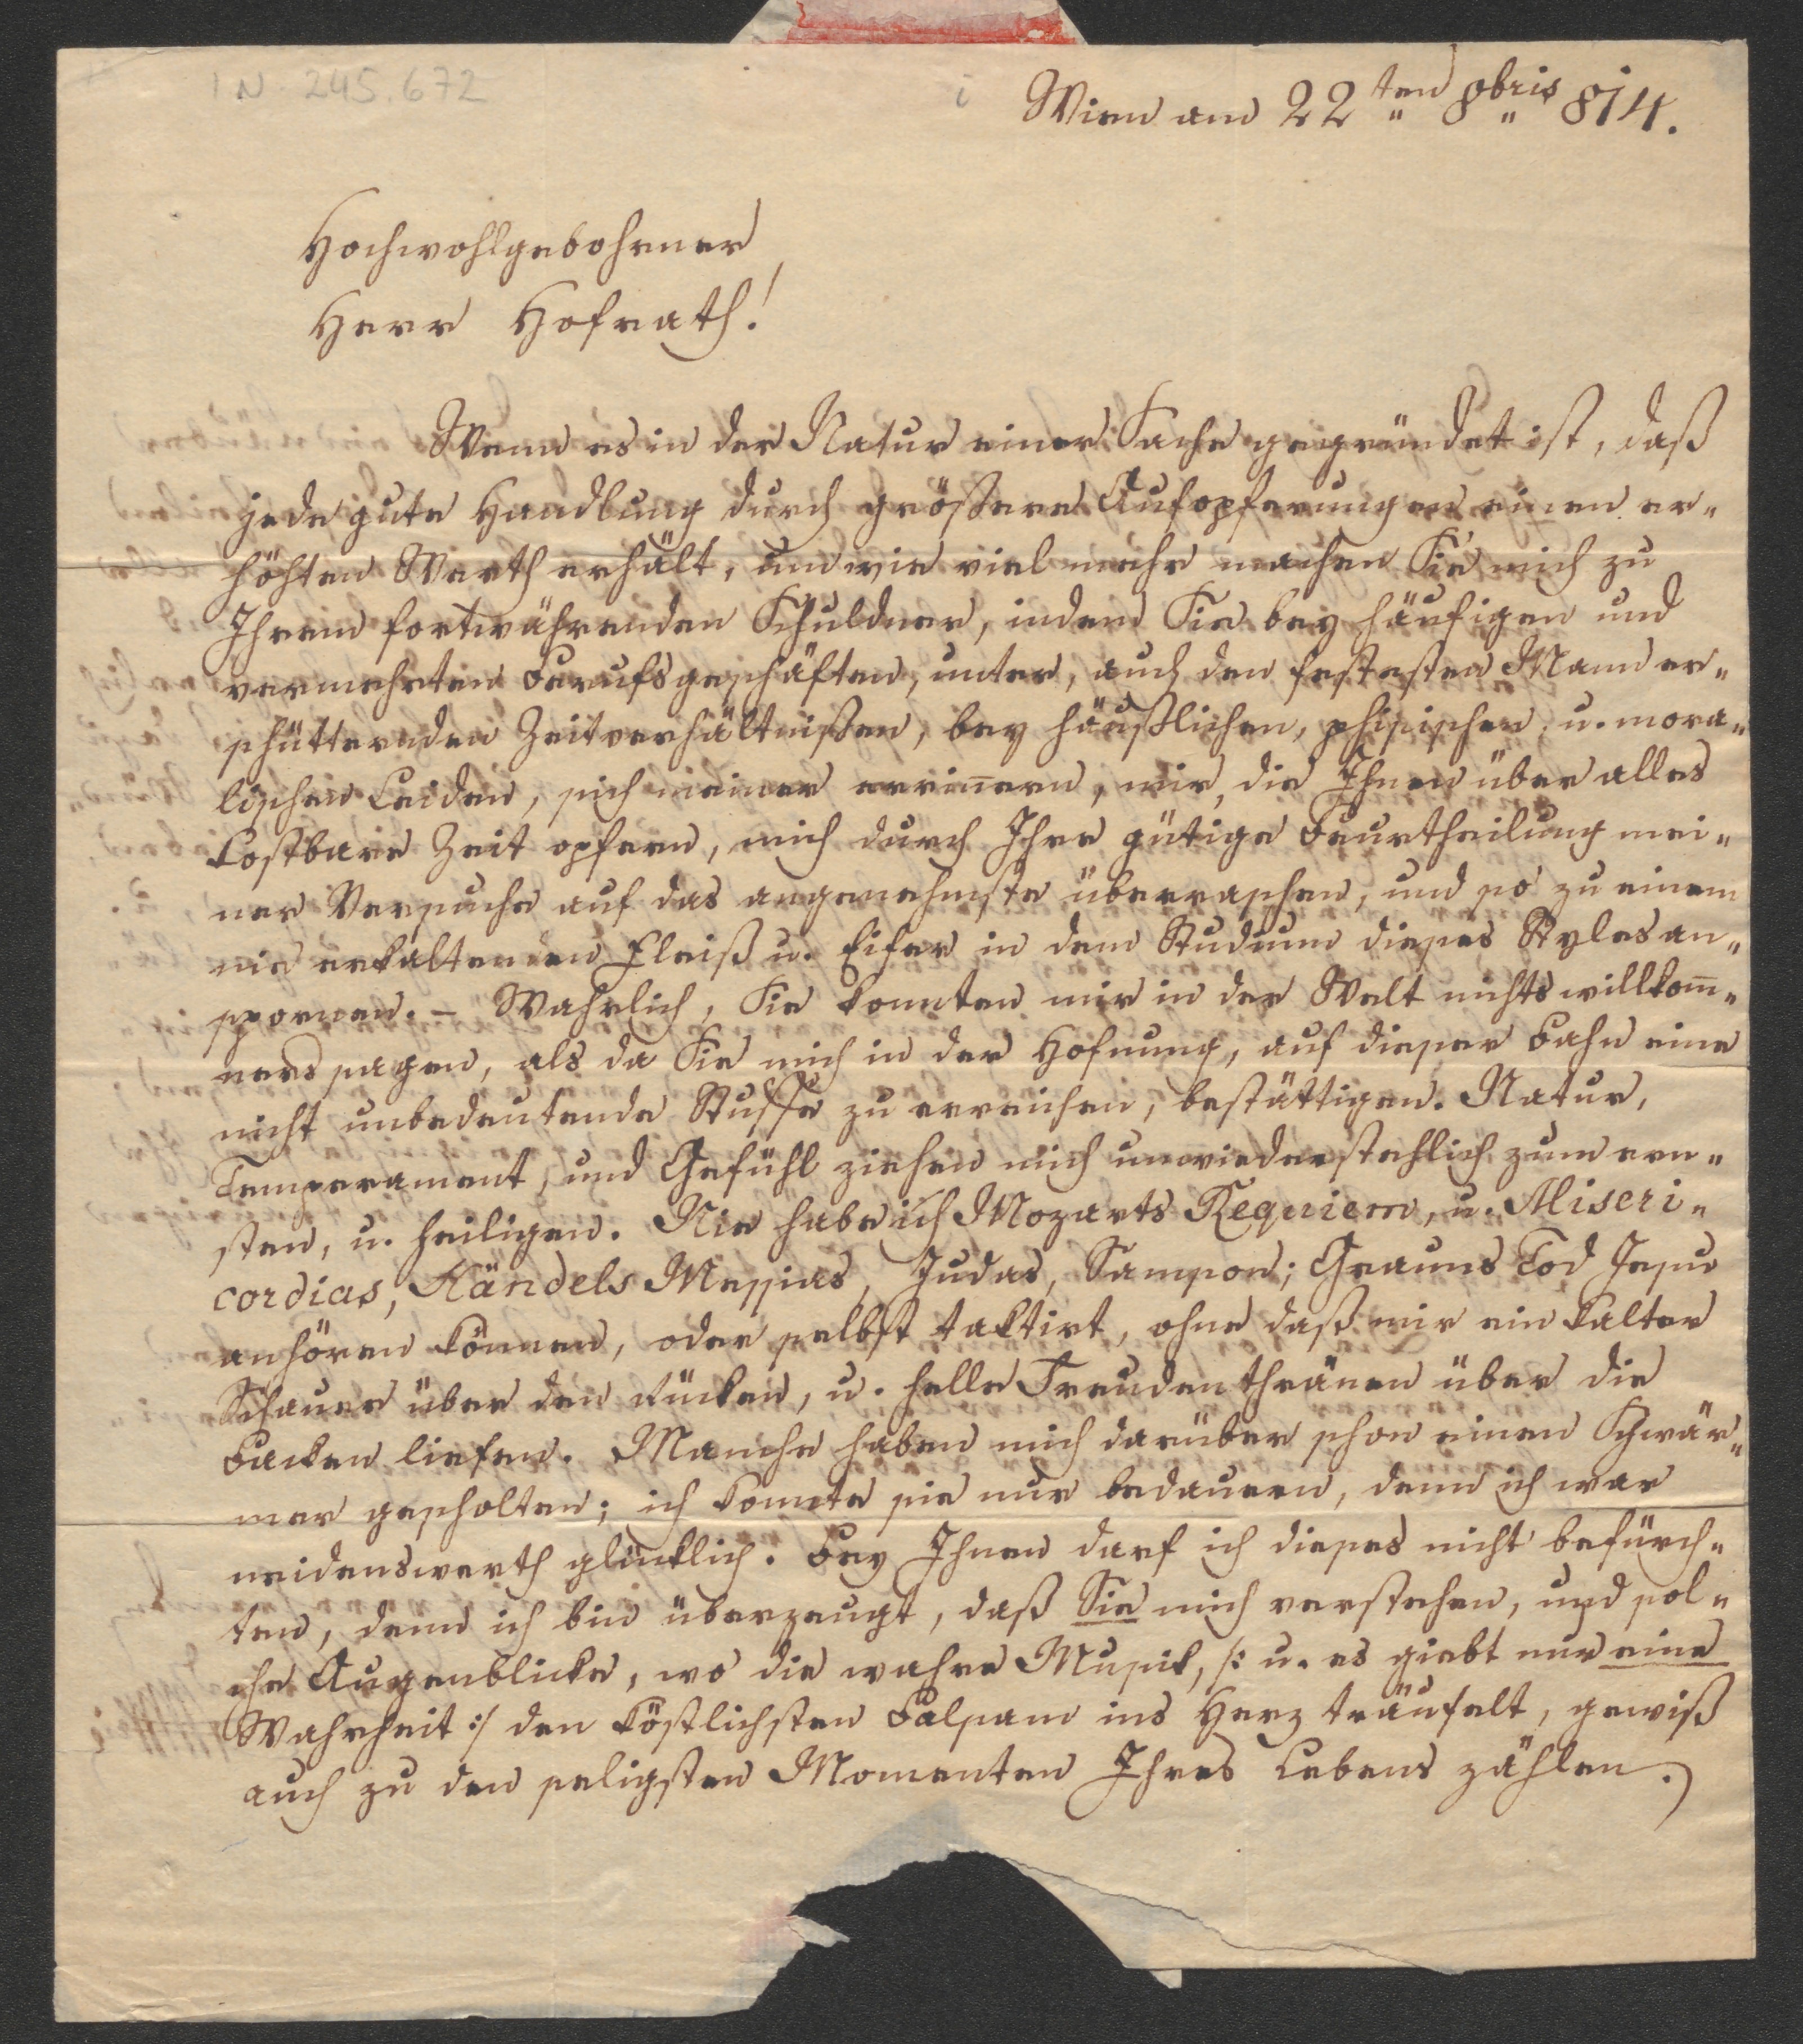 IN 245.672
Wien am 22ten 8bris 814.
Hochwohlgebohrner
Herr Hofrath!
Wenn es in der Natur einer Sache gegründet ist, daß
jede gute Handlung durch größere Aufopferungen einen er-
höhten Werth erhält, um wie viel mehr machen Sie mich zu
Ihrem fortwährenden Schuldner, indem Sie bey häufigen und
vermehrten Berufsgeschäften, unter, auch den festesten Mann er-
schütternden Zeitverhältnißen, bey häußlichen, phisischen, u. mora-
lischen Leiden, sich meiner erriñern, mir, die Ihnen über alles
kostbare Zeit opfern, mich durch Ihre gütige Beurtheilung mei-
ner Versuche auf das angenehmste überraschen, und so zu einem
nie erkaltenden Fleiß u. Eifer in dem Studium dieses Styles an-
spornen. – Wahrlich, Sie konnten mir in der Welt nichts willkom̄-
ners sagen, als da Sie mich in der Hofnung, auf dieser Bahn eine
nicht unbedeutende Stuffe zu erreichen, bestättigen. Natur,
Temperament, und Gefühl ziehen mich unwiederstehlich zum ern-
sten, u. heiligen. Nie habe ich Mozarts Requiem, u. Miseri-
cordias, Händels Messias, Judas, Samson; Grauns Tod Jesu
anhören können, oder selbst taktirt, ohne daß mir ein kalter
Schauer über den Rücken, u. helle Freudenthränen über die
Backen liefen. Manche haben mich darüber schon einen Schwär-
mer gescholten; ich konnte sie nur bedauern, denn ich war
neidenswerth glücklich. Bey Ihnen darf ich dieses nicht befürch-
ten, denn ich bin überzeugt, daß Sie mich verstehen, und sol-
che Augenblicke, wo die wahre Musik, /: u. es giebt nur eine
Wahrheit :/ den köstlichsten Balsam ins Herz träufelt, gewiß
auch zu den seligsten Momenten Ihres Lebens zählen.